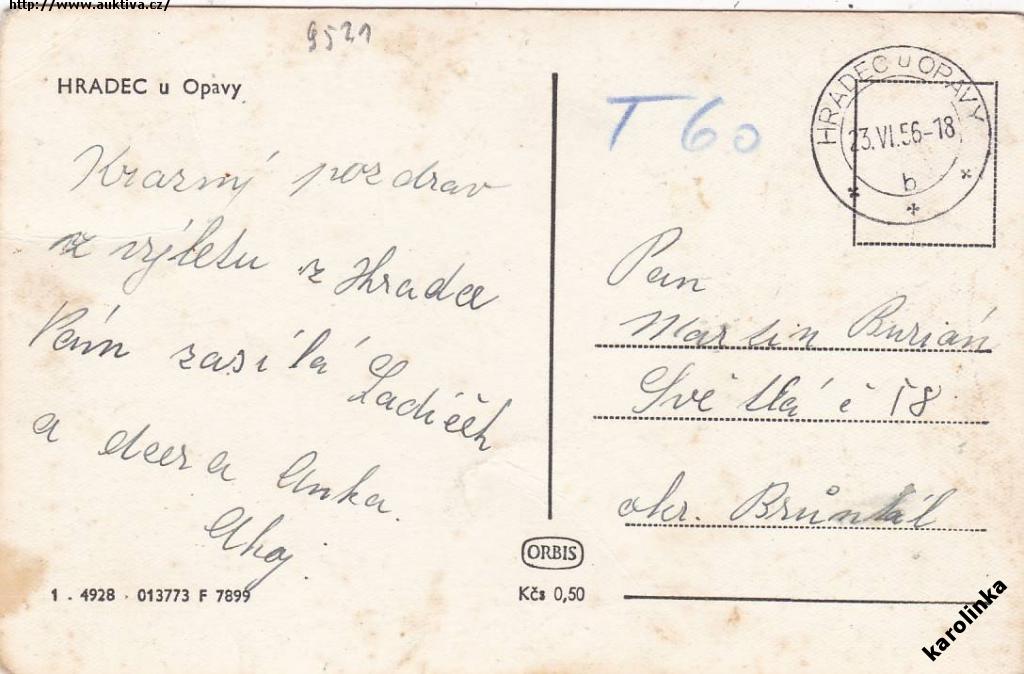 http://www.auktiva.cz/
9521
HRADEC u Opavy
Krazný pozdrav
z výletu z Hradce
Vám zasílá Ladíček
a dcera Anka.
Ahoj.
1 . 4928 · 013773 F 7899
ORBIS
Kčs 0,50
T 60
HRADEC u OPAVY
23.VI.56-18
b
Pan
Martin Burián
Světlá č 18
okr. Bruntál
karolinka